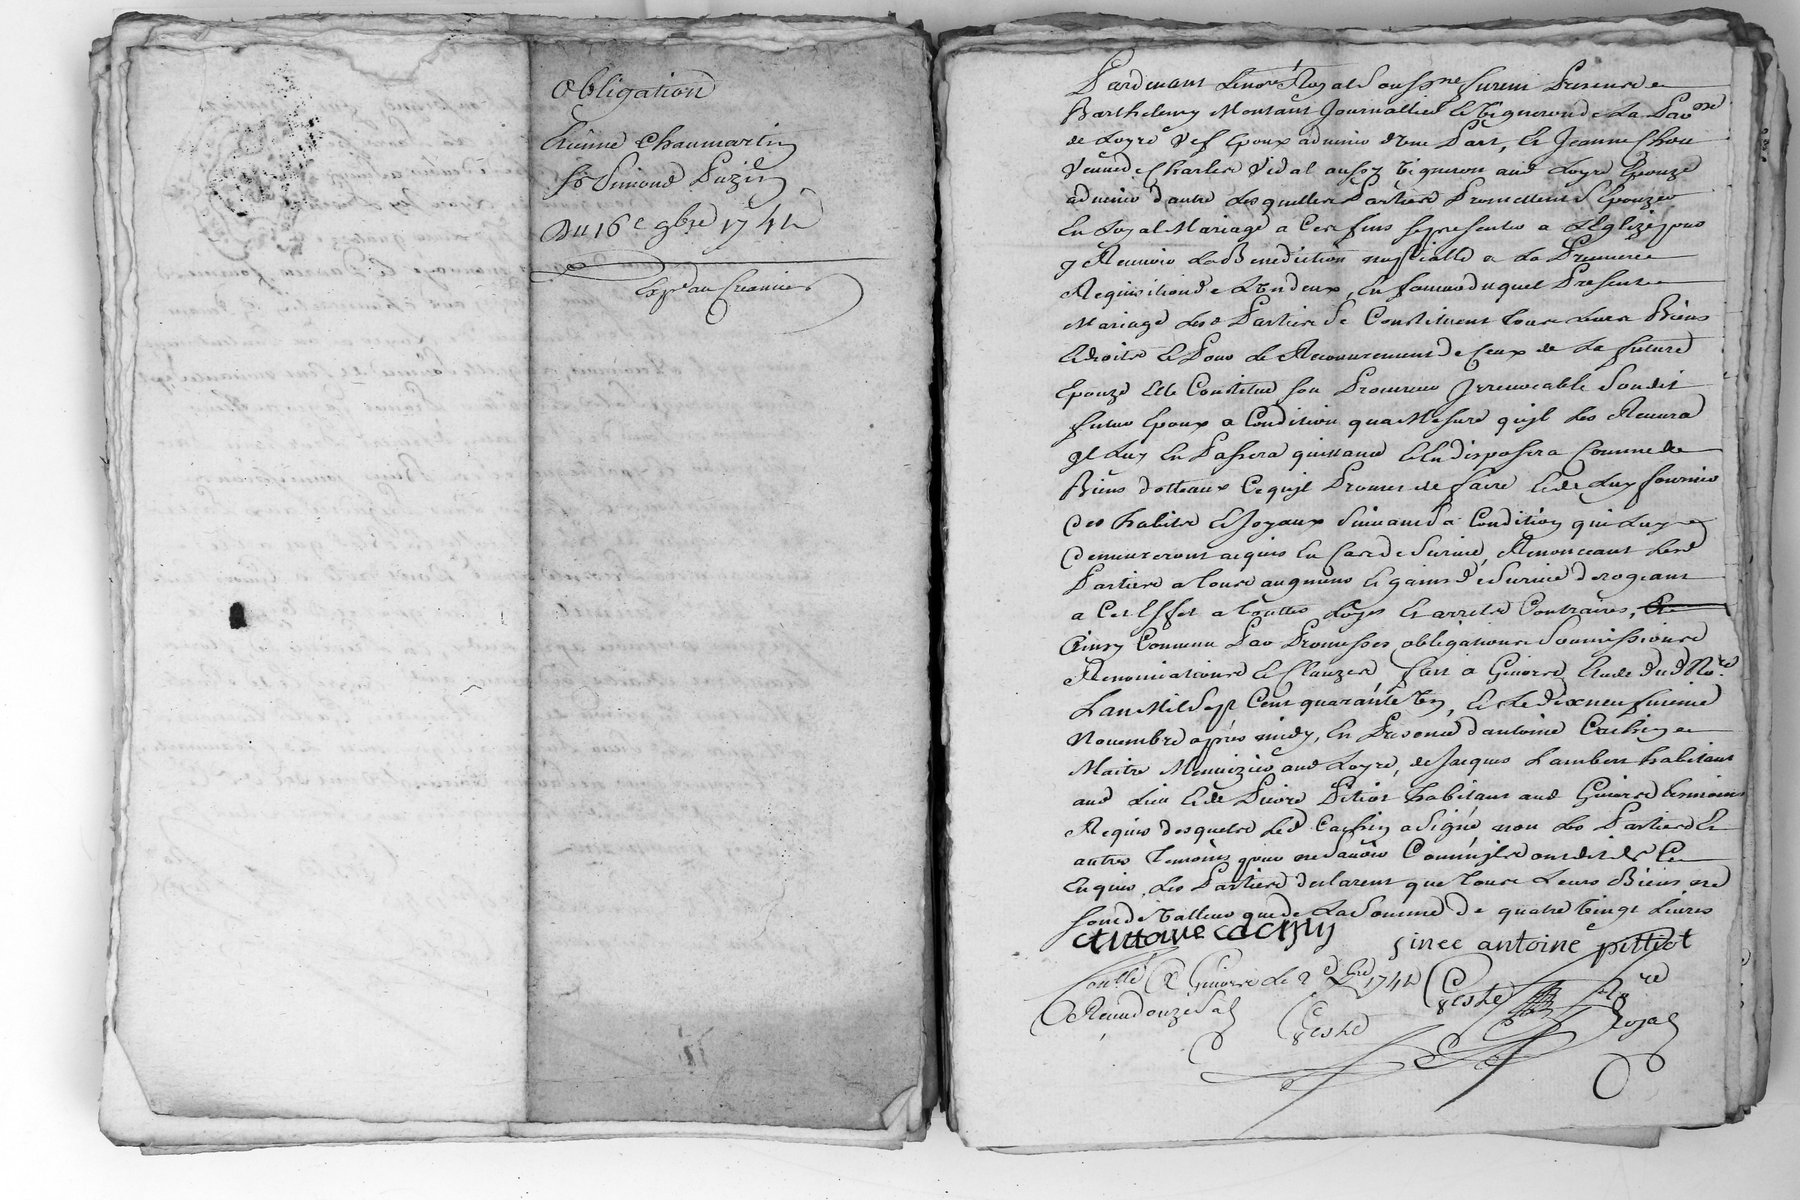 Obligation
Etienne Chaumartin
Sr Simond Puzin
Du 16e 9bre 1741
Expé au Creancier
Pardevant Le nore Royal Soussne furent Presents
Barthelemy Montant Journallier Et Vigneron de La Parosse
de Loyre Vef Epoux advenir d'Une Part, Et Jeanne Chou
Veuve de Charles Vidal aussy Vigneron aud Loyre Epouze
advenir d'autre Lesquelles Parties Promettent S'Epouzer
En Loyal Mariage a Ces fins se presenter a L'Eglize pour
y Recevoir La Benediction nuptialle a La Premiere
Requisition de L'Un deux, En faveur duquel Present
Mariage Lesd Parties Se Constituent tous Leurs Biens
Et droits Et Pour Le Recouvrement de Ceux de La future
Epouze Elle Constitue son Procureur Irrevocable Soudit
futur Epoux a Condition qua Mesure quyl Les Recevra
yl Luy En Passera quittance Et En disposera Comme de
Biens dotteaux Ce quyl Promet de faire Et de Luy fournir
des habits Et Joyaux Suivant Sa Condition qui Luy
demeureront acquis En Cas de Survie, Renonceant Lesd
Parties a tous augment Et gains de Survie derogeant
a Cet Effet a touttes Loyes Et arrets Contraires,
Ainsy Convenu Par Promesses obligations Soumissions
Renonciations Et Clauzes, fait a Givors Etude dud Nore
L'an Mil Sept Cent quarante Un, Et Le dix neufvieme
Novembre après midy, En Presence d'antoine Cachin
Maitre Menuizier aud Loyre, de Jacques Lambert habitant
aud Lieu Et de Pierre Pitiot habitant aud Givors temoins
Requis desquels Led Cachin a Signé non Les Parties Et
autres temoins pour ne Savoir Comme ils ont dit de Ce
Enquis, Les Parties declarent que tous Leurs Biens ne
sont de Valleur que de La Somme de quatre Vingt Livres
antoine cachin
antoine pittiot
Conllé a Givors Le 2e Xbre 1741
Receu douze Sols
Geste
Geste
Nore
Royal